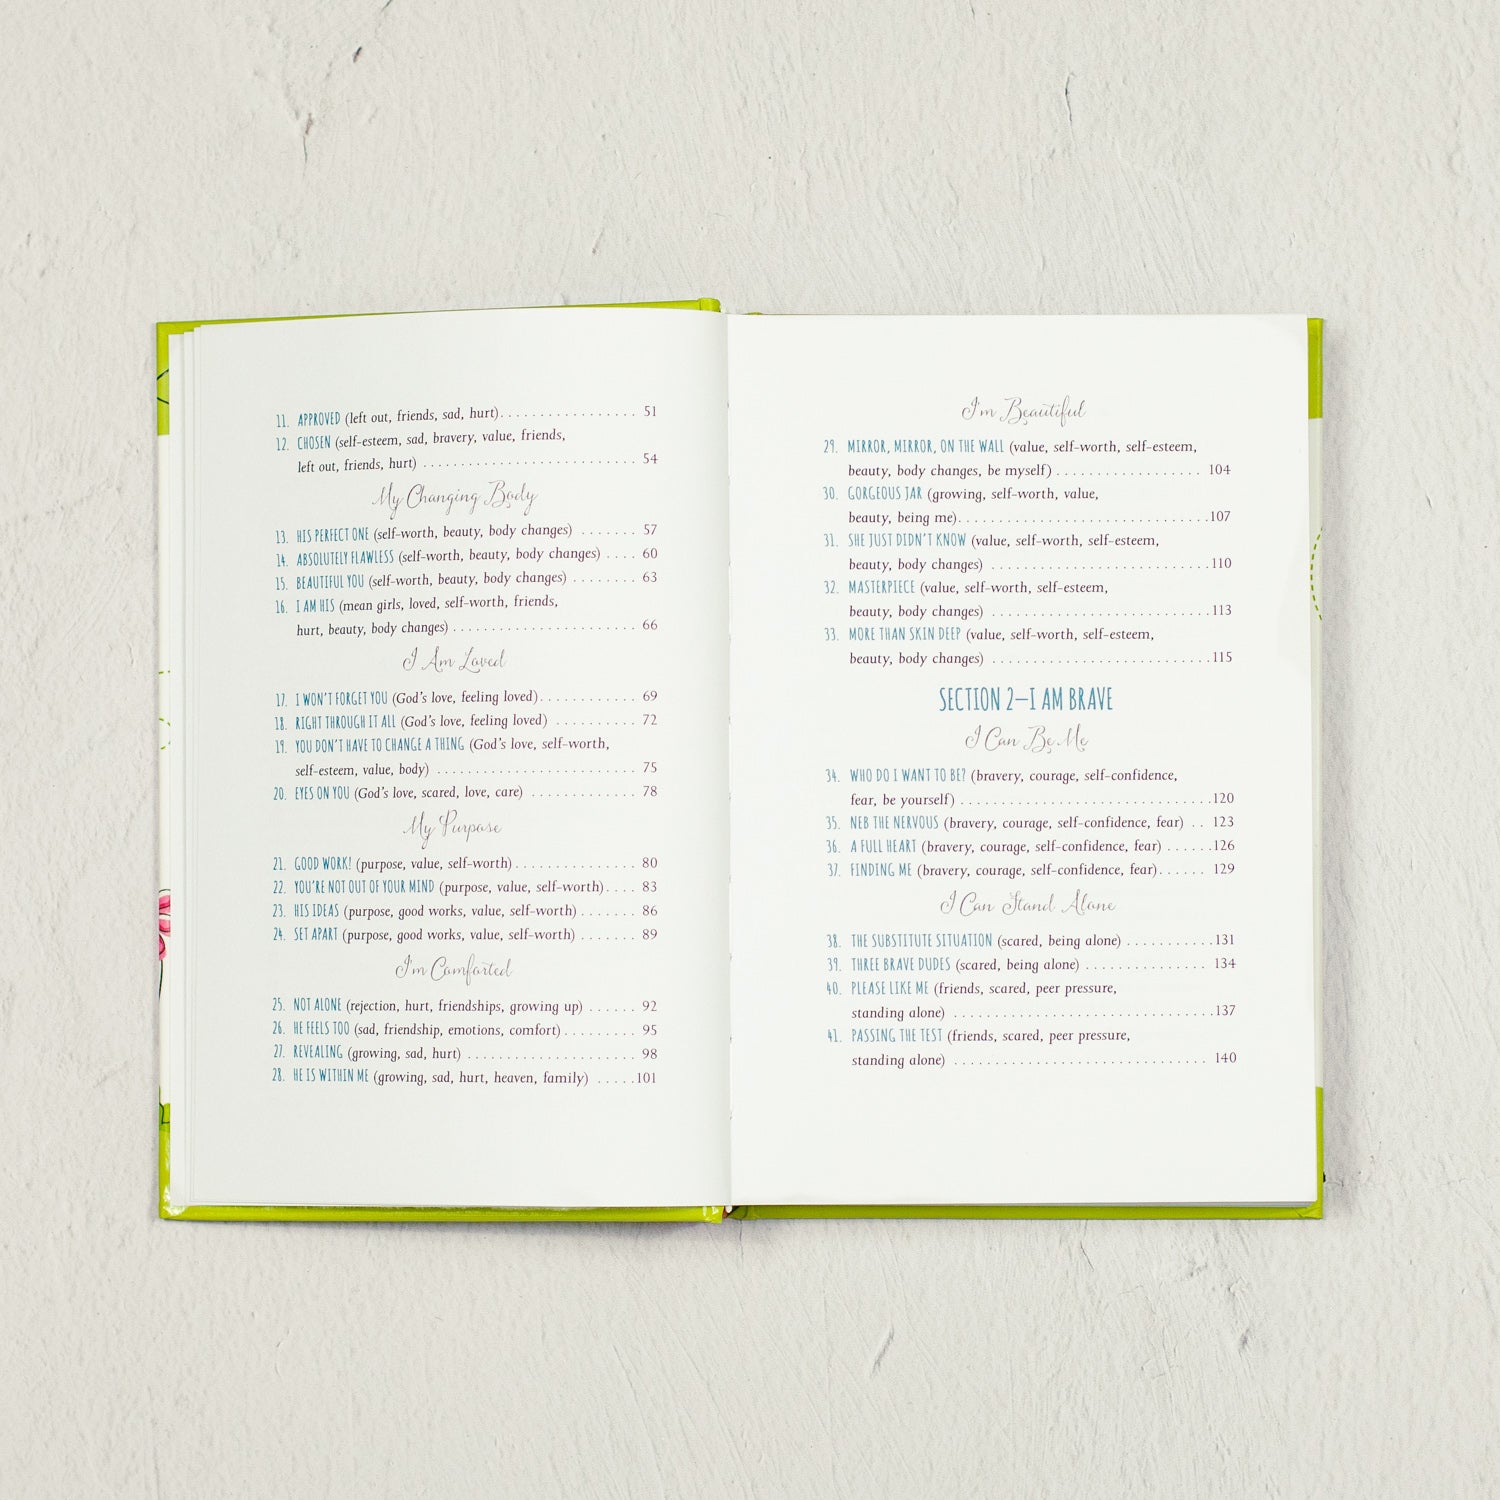 11. APPROVED (left out, friends, sad, hurt). . . . . . . . . . . . . . . . . 51
12. CHOSEN (self-esteem, sad, bravery, value, friends,
left out, friends, hurt) . . . . . . . . . . . . . . . . . . . . . . . . . . 54
My Changing Body
13. HIS PERFECT ONE (self-worth, beauty, body changes) . . . . . . . 57
14. ABSOLUTELY FLAWLESS (self-worth, beauty, body changes) . . . . 60
15. BEAUTIFUL YOU (self-worth, beauty, body changes) . . . . . . . . 63
16. I AM HIS (mean girls, loved, self-worth, friends,
hurt, beauty, body changes) . . . . . . . . . . . . . . . . . . . . . . 66
I Am Loved
17. I WON'T FORGET YOU (God's love, feeling loved). . . . . . . . . . . . 69
18. RIGHT THROUGH IT ALL (God's love, feeling loved) . . . . . . . . . . 72
19. YOU DON'T HAVE TO CHANGE A THING (God's love, self-worth,
self-esteem, value, body) . . . . . . . . . . . . . . . . . . . . . . . . 75
20. EYES ON YOU (God's love, scared, love, care) . . . . . . . . . . . . . 78
My Purpose
21. GOOD WORK! (purpose, value, self-worth) . . . . . . . . . . . . . . . 80
22. YOU'RE NOT OUT OF YOUR MIND (purpose, value, self-worth). . . . 83
23. HIS IDEAS (purpose, good works, value, self-worth) . . . . . . . 86
24. SET APART (purpose, good works, value, self-worth) . . . . . . . 89
I'm Comforted
25. NOT ALONE (rejection, hurt, friendships, growing up) . . . . . . 92
26. HE FEELS TOO (sad, friendship, emotions, comfort) . . . . . . . . . 95
27. REVEALING (growing, sad, hurt) . . . . . . . . . . . . . . . . . . . . . 98
28. HE IS WITHIN ME (growing, sad, hurt, heaven, family) . . . . .101
I'm Beautiful
29. MIRROR, MIRROR, ON THE WALL (value, self-worth, self-esteem,
beauty, body changes, be myself) . . . . . . . . . . . . . . . . . . 104
30. GORGEOUS JAR (growing, self-worth, value,
beauty, being me). . . . . . . . . . . . . . . . . . . . . . . . . . . . . . .107
31. SHE JUST DIDN'T KNOW (value, self-worth, self-esteem,
beauty, body changes) . . . . . . . . . . . . . . . . . . . . . . . . . . . .110
32. MASTERPIECE (value, self-worth, self-esteem,
beauty, body changes) . . . . . . . . . . . . . . . . . . . . . . . . . . . .113
33. MORE THAN SKIN DEEP (value, self-worth, self-esteem,
beauty, body changes) . . . . . . . . . . . . . . . . . . . . . . . . . . . .115
SECTION 2—I AM BRAVE
I Can Be Me
34. WHO DO I WANT TO BE? (bravery, courage, self-confidence,
fear, be yourself) . . . . . . . . . . . . . . . . . . . . . . . . . . . . . . .120
35. NEB THE NERVOUS (bravery, courage, self-confidence, fear) . . 123
36. A FULL HEART (bravery, courage, self-confidence, fear) . . . . . .126
37. FINDING ME (bravery, courage, self-confidence, fear). . . . . . 129
I Can Stand Alone
38. THE SUBSTITUTE SITUATION (scared, being alone) . . . . . . . . . . .131
39. THREE BRAVE DUDES (scared, being alone) . . . . . . . . . . . . . . . 134
40. PLEASE LIKE ME (friends, scared, peer pressure,
standing alone) . . . . . . . . . . . . . . . . . . . . . . . . . . . . . . . . .137
41. PASSING THE TEST (friends, scared, peer pressure,
standing alone) . . . . . . . . . . . . . . . . . . . . . . . . . . . . . . . . 140